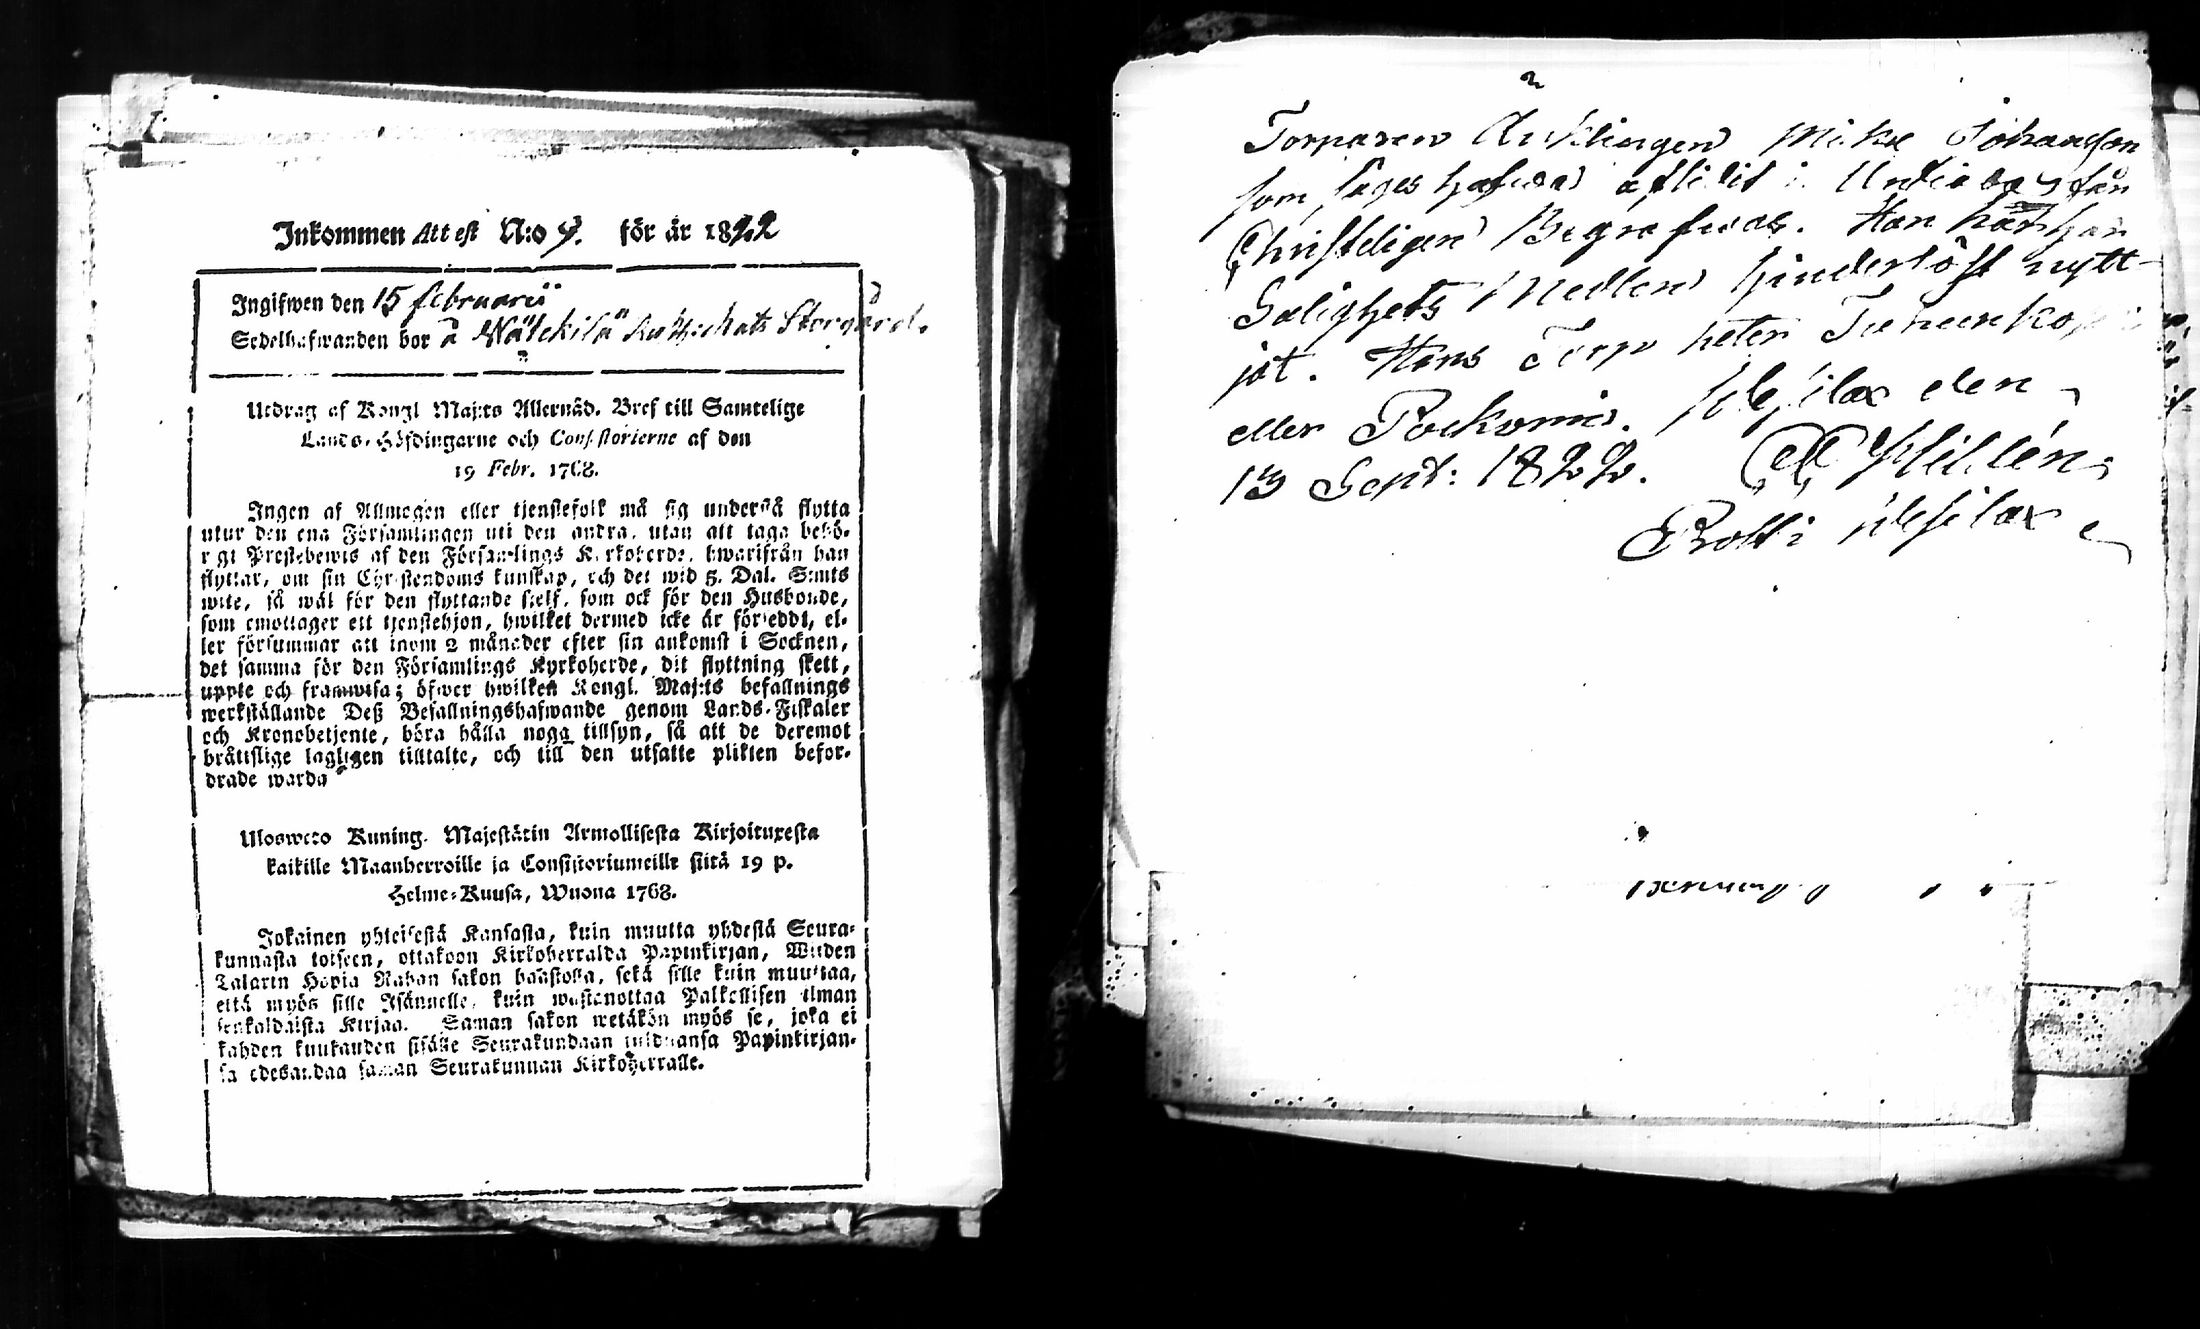 Inkommen Attest N:o 9. för år 1822
Ingifwen den 15 februarii
Sedelhafwanden bor å Wäl Storgård.
Utdrag af Kongl Maj:ts Allernåd. Bref till Samtelige
Lands-Höfdingarne och Consistorierne af den
19 Febr. 1768.
Ingen af Allmogen eller tjenstefolk må sig understå flytta
utur den ena Församlingen uti den andra, utan att taga behö-
rigt Prestebewis af den Församlings Kyrkoherde, hwarifrån han
flyttar, om sin Christendoms kunskap, och det wid 5. Dal. S:mts
wite, så wäl för den flyttande sjelf, som ock för den Husbonde,
som emottager ett tjenstehjon, hwilket dermed icke är förseddt, el-
ler försummar att inom 2 månader efter sin ankomst i Socknen,
det samma för den Församlings Kyrkoherde, dit flyttning skett,
uppte och framwisa; öfwer hwilken Kongl. Maj:ts befallnings
werkställande Deß Befallningshafwande genom Lands-Fiskaler
och Kronobetjente, böra hålla noga tillsyn, så att de deremot
bråttslige lagligen tilltalte, och till den utsatte plikten befor-
drade warda
Ulosweto Kuning. Majestätin Armollisesta Kirjoituxesta
kaikille Maanherroille ja Consistoriumeille siitä 19 p.
Helme-Kuusa, Wuona 1768.
Jokainen yhteisestä Kansasta, kuin muutta yhdestä Seura-
kunnasta toiseen, ottakoon Kirkoherralda Papinkirjan, Wiiden
Talarin Hopia Rahan sakon haastolla, sekä sille kuin muuttaa,
että myös sille Isännelle, kuin wastanottaa Palkollisen ilman
senkaldaista Kirjaa. Saman sakon wetäkön myös se, joka ei
kahden kuukauden sisälle Seurakundaan tulduansa Papinkirjan-
sa edesandaa saman Seurakunnan Kirkoherralle.
Torparen Änklingen Johansson
som säges hafwa aflidit i får
Christeligen Begrafwas. Han har här
Salighets Medlen hinderlöst nytt-
jat. Hans Torp heter
eller
13 Sept: 1822.